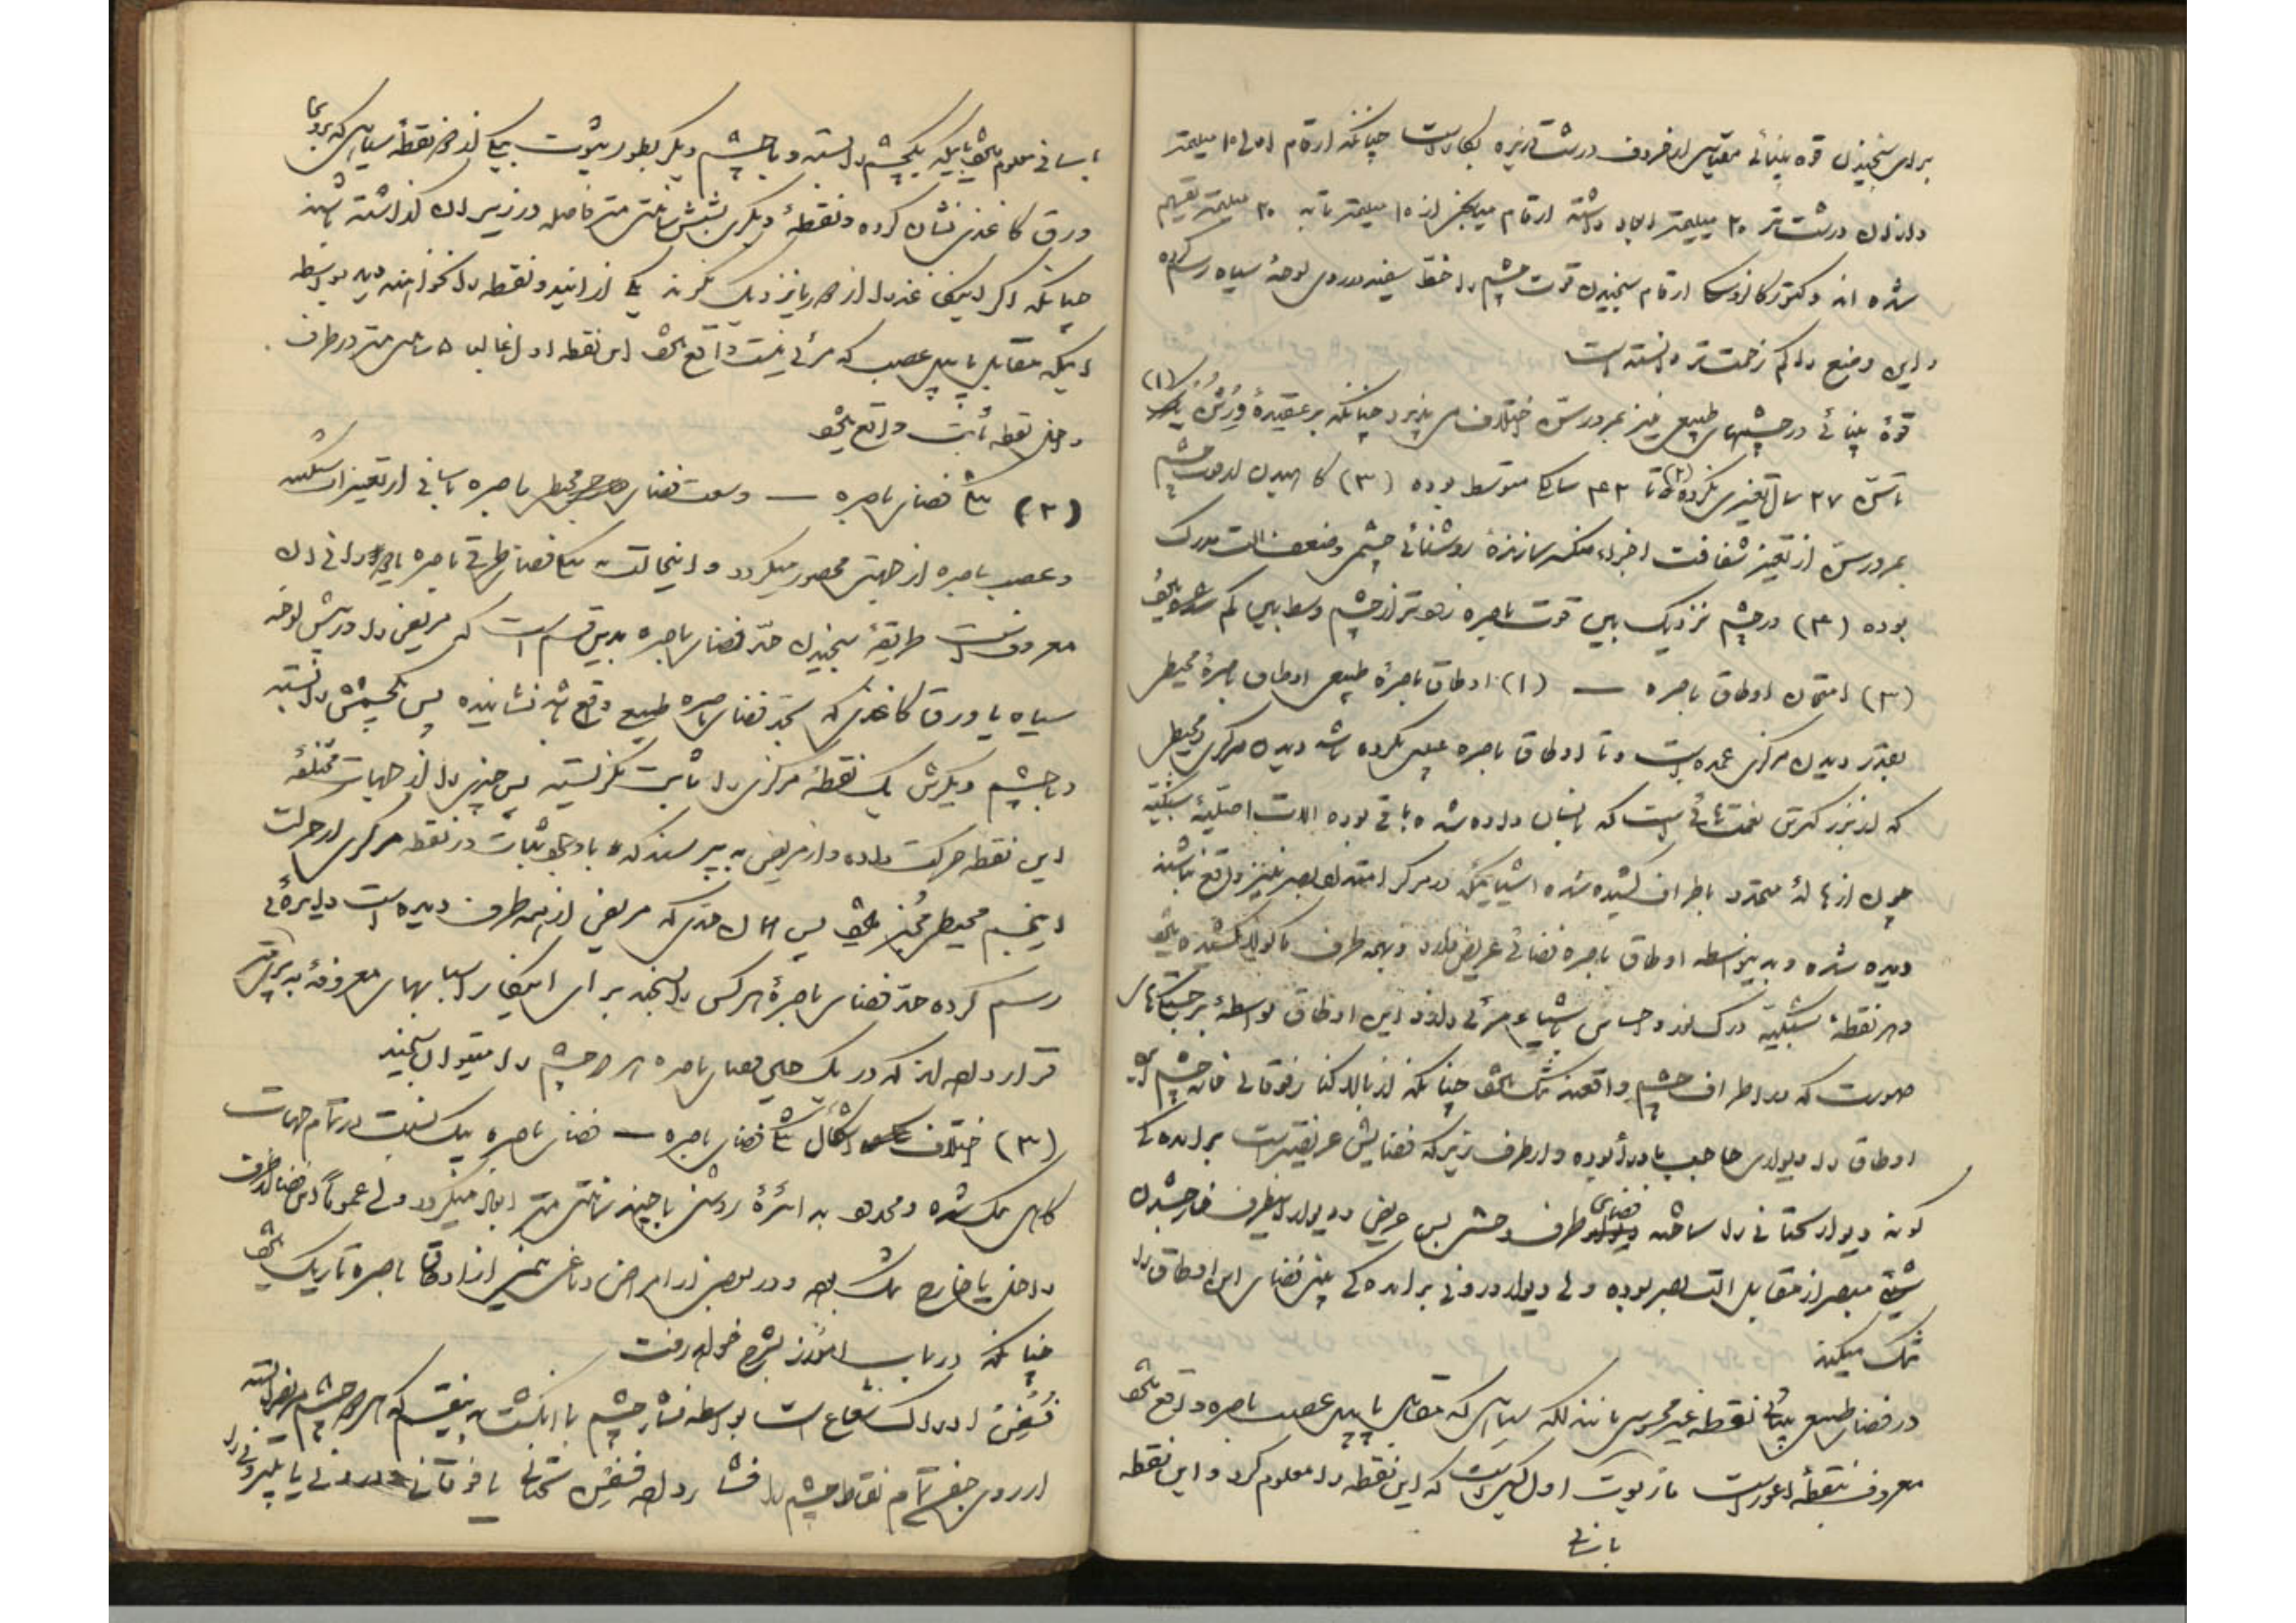 برای سنجیدن قوه بینائی مقیاس از حروف درشت و ریزه بکار است چنانکه ارقام اصلی ۱۰ میلیمتر
و از ان درشت تر ۲۰ میلیمتر ایجاد داشته ارقام میانجی از ۱۰ میلیمتر تا به ۲۰ میلیمتر تقسیم
شده اند دکتور ارقام سنجیدن قوت چشم را خط سفید در روی لوحهٔ سیاه رسم کرده
و این وضع را کم زحمت تر دانسته است
قوهٔ بینائی در چشمهای طبیعی نیز بمرور سن اختلاف می پذیرد چنانکه بر عقیدهٔ (۱)
تا سن ۲۷ سال تغییری نکرده (۲) تا ۴۲ سالگی متوسط بوده (۳) کاهیدن قوت چشم
بمرور سن از تغییر شفافت اجزاء منکسر سازندهٔ روشنائی چشم و ضعف الت مدرک
بوده (۴) در چشم نزدیک بین قوت باصره زودتر از چشم وسط بین کم میشود
(۳) امتحان اوطاق باصره — (۱) اوطاق باصرهٔ طبیعی اوطاق باصرهٔ محیطی
بقدر دیدن مرکزی عمده است و تا اوطاق باصره عیبی نکرده باشد دیدن مرکزی و محیطی
که از بزرگترین نعمتهائی است که بانسان داده شده باقی بوده الات اصلیهٔ شبکیه
چون از هالهٔ محدود باطراف کشیده شده اشیائیکه در مرکز امتداد بصر نیز واقع نباشند
دیده شده و به بواسطه اوطاق باصره فضائی عریض دارد و بهمه طرف کشیده میشود
و هر نقطهٔ شبکیه درک نور و احساس باشیاء مرئی دارد این اوطاق بواسطهٔ برجستگیهای
صورت که در اطراف چشم واقعند تنگ میشود چنانکه از بالا کنار فوقانی خانه چشم
اوطاق را دیواری حاجب بوده و از طرف زیر که فضایش عریضتر است برامده گی
گونه دیوار تحتانی را ساخته فضای طرف وحشی بس عریض و دیوار اینطرف خارج شدن
شیئی مبصر از مقابل الت بصر بوده ولی دیوار درونی برامده گی بینی فضای این اوطاق را
تنگ میکند
در فضای طبیعی بینائی نقطه غیر محسوس مانند لکه سیاهی که مقابل پاپیل عصب باصره واقع میشود
معروف بنقطهٔ اعور است ماریوت اول کسی است که این نقطه را معلوم کرد و این نقطه
باسانی
باسانی معلوم میشود باینکه یکچشم را بسته و با چشم دیگر بطور ثبوت بیکی از دو نقطهٔ سیاهی که بر روی
ورق کاغذی نشان کرده و نقطهٔ دیگری بشش سانتی متر فاصله در زیر ان گذاشته باشند
چنانکه اگر اینکاغذ را از دور یا نزدیک نگرند یکی از ایندو نقطه را نخواهند دید بواسطه
اینکه مقابل پاپیل عصب که مرئی نیست واقع میشود این نقطه اول غالبا ۵ سانتی متر در طرف
داخل نقطه ثابت واقع میشود
(۲) تنگی فضای باصره — وسعت فضای محیطی باصره باسانی از تغییرات شبکیه
و عصب باصره از جهتی محصور میگردد و اینحالت به تنگی فضا و طرقی باصره یا دورانی ان
معروفست طریقهٔ سنجیدن حد فضای باصره بدین قسم است که مریض را در پیش لوحه
سیاه یا ورق کاغذی که بحد فضای باصره طبیعی واقع باشد نشانیده پس یکچشمش را بسته
و با چشم دیگرش یک نقطهٔ مرکزی را ثابت نگرسته پس چیزی را از جهات مختلفهٔ
این نقطه حرکت داده و از مریض به پرسند که باوجود ثبات در نقطه مرکزی از حرکت
اینجسم محیطی مخبر میشود پس همان حدی که مریض از همه طرف دیده است دایرهٔ
رسم کرده حد فضای باصرهٔ هر کس را بسنجند برای اینکار اسبابهای معروفهٔ به پریمتر
قرار داده اند که در یک حین فضای باصره هر دو چشم را میتوان سنجید
(۳) اختلاف اشکال تنگی فضای باصره — فضای باصره بیک نسبت در تمام جهات
گاهی تنگ شده و محدود به دائرهٔ روشنی با چند سانتی متر اقطار میگردد ولی عموماً این فضا از طرف
داخل یا خارج تنگ بوده و در بعضی از امراض دماغی نیمی از اوطاق باصره تاریک میشود
چنانکه در باب امورز بشرح خواهد رفت
فُسفِن ادراک شعاع است بواسطه فشار چشم با انکشت بدینقسم که هر دو چشم مریض را بسته
از روی جفن تمام نقاط چشم را فشار داده فسفن تحتانی یا فوقانی درونی یا بیرونی را